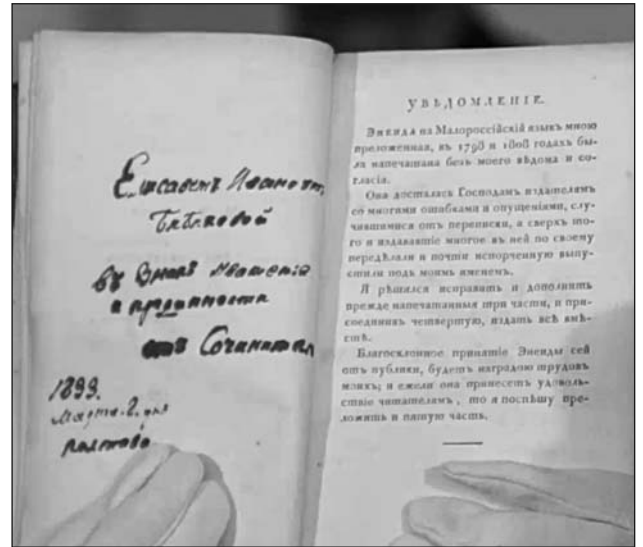 Елисаветъ Ивановнѣ,
въ Знакъ Уваженія
и преданности
отъ Сочинителя
Марта. 2. дня
Полтава
УВѢДОМЛЕНІЕ.
Энеида на Малороссійскій языкъ мною
преложенная, въ 1798 и 1808 годахъ бы-
ла напечатана безъ моего вѣдома и со-
гласія.
Она досталась Господамъ издателямъ
со многими ошибками и опущеніями, слу-
чившимися отъ переписки, а сверхъ то-
го и издававшіе многое въ ней по своему
передѣлали и почти испорченную выпу-
стили подъ моимъ именемъ.
Я рѣшился исправить и дополнить
прежде напечатанныя три части, и при-
соединивъ четвертую, издать всѣ вмѣ-
стѣ.
Благосклонное принятіе Энеиды сей
отъ публики, будетъ наградою трудовъ
моихъ; и ежели она принесетъ удоволь-
ствіе читателямъ, то я поспѣшу пре-
ложить и пятую часть.